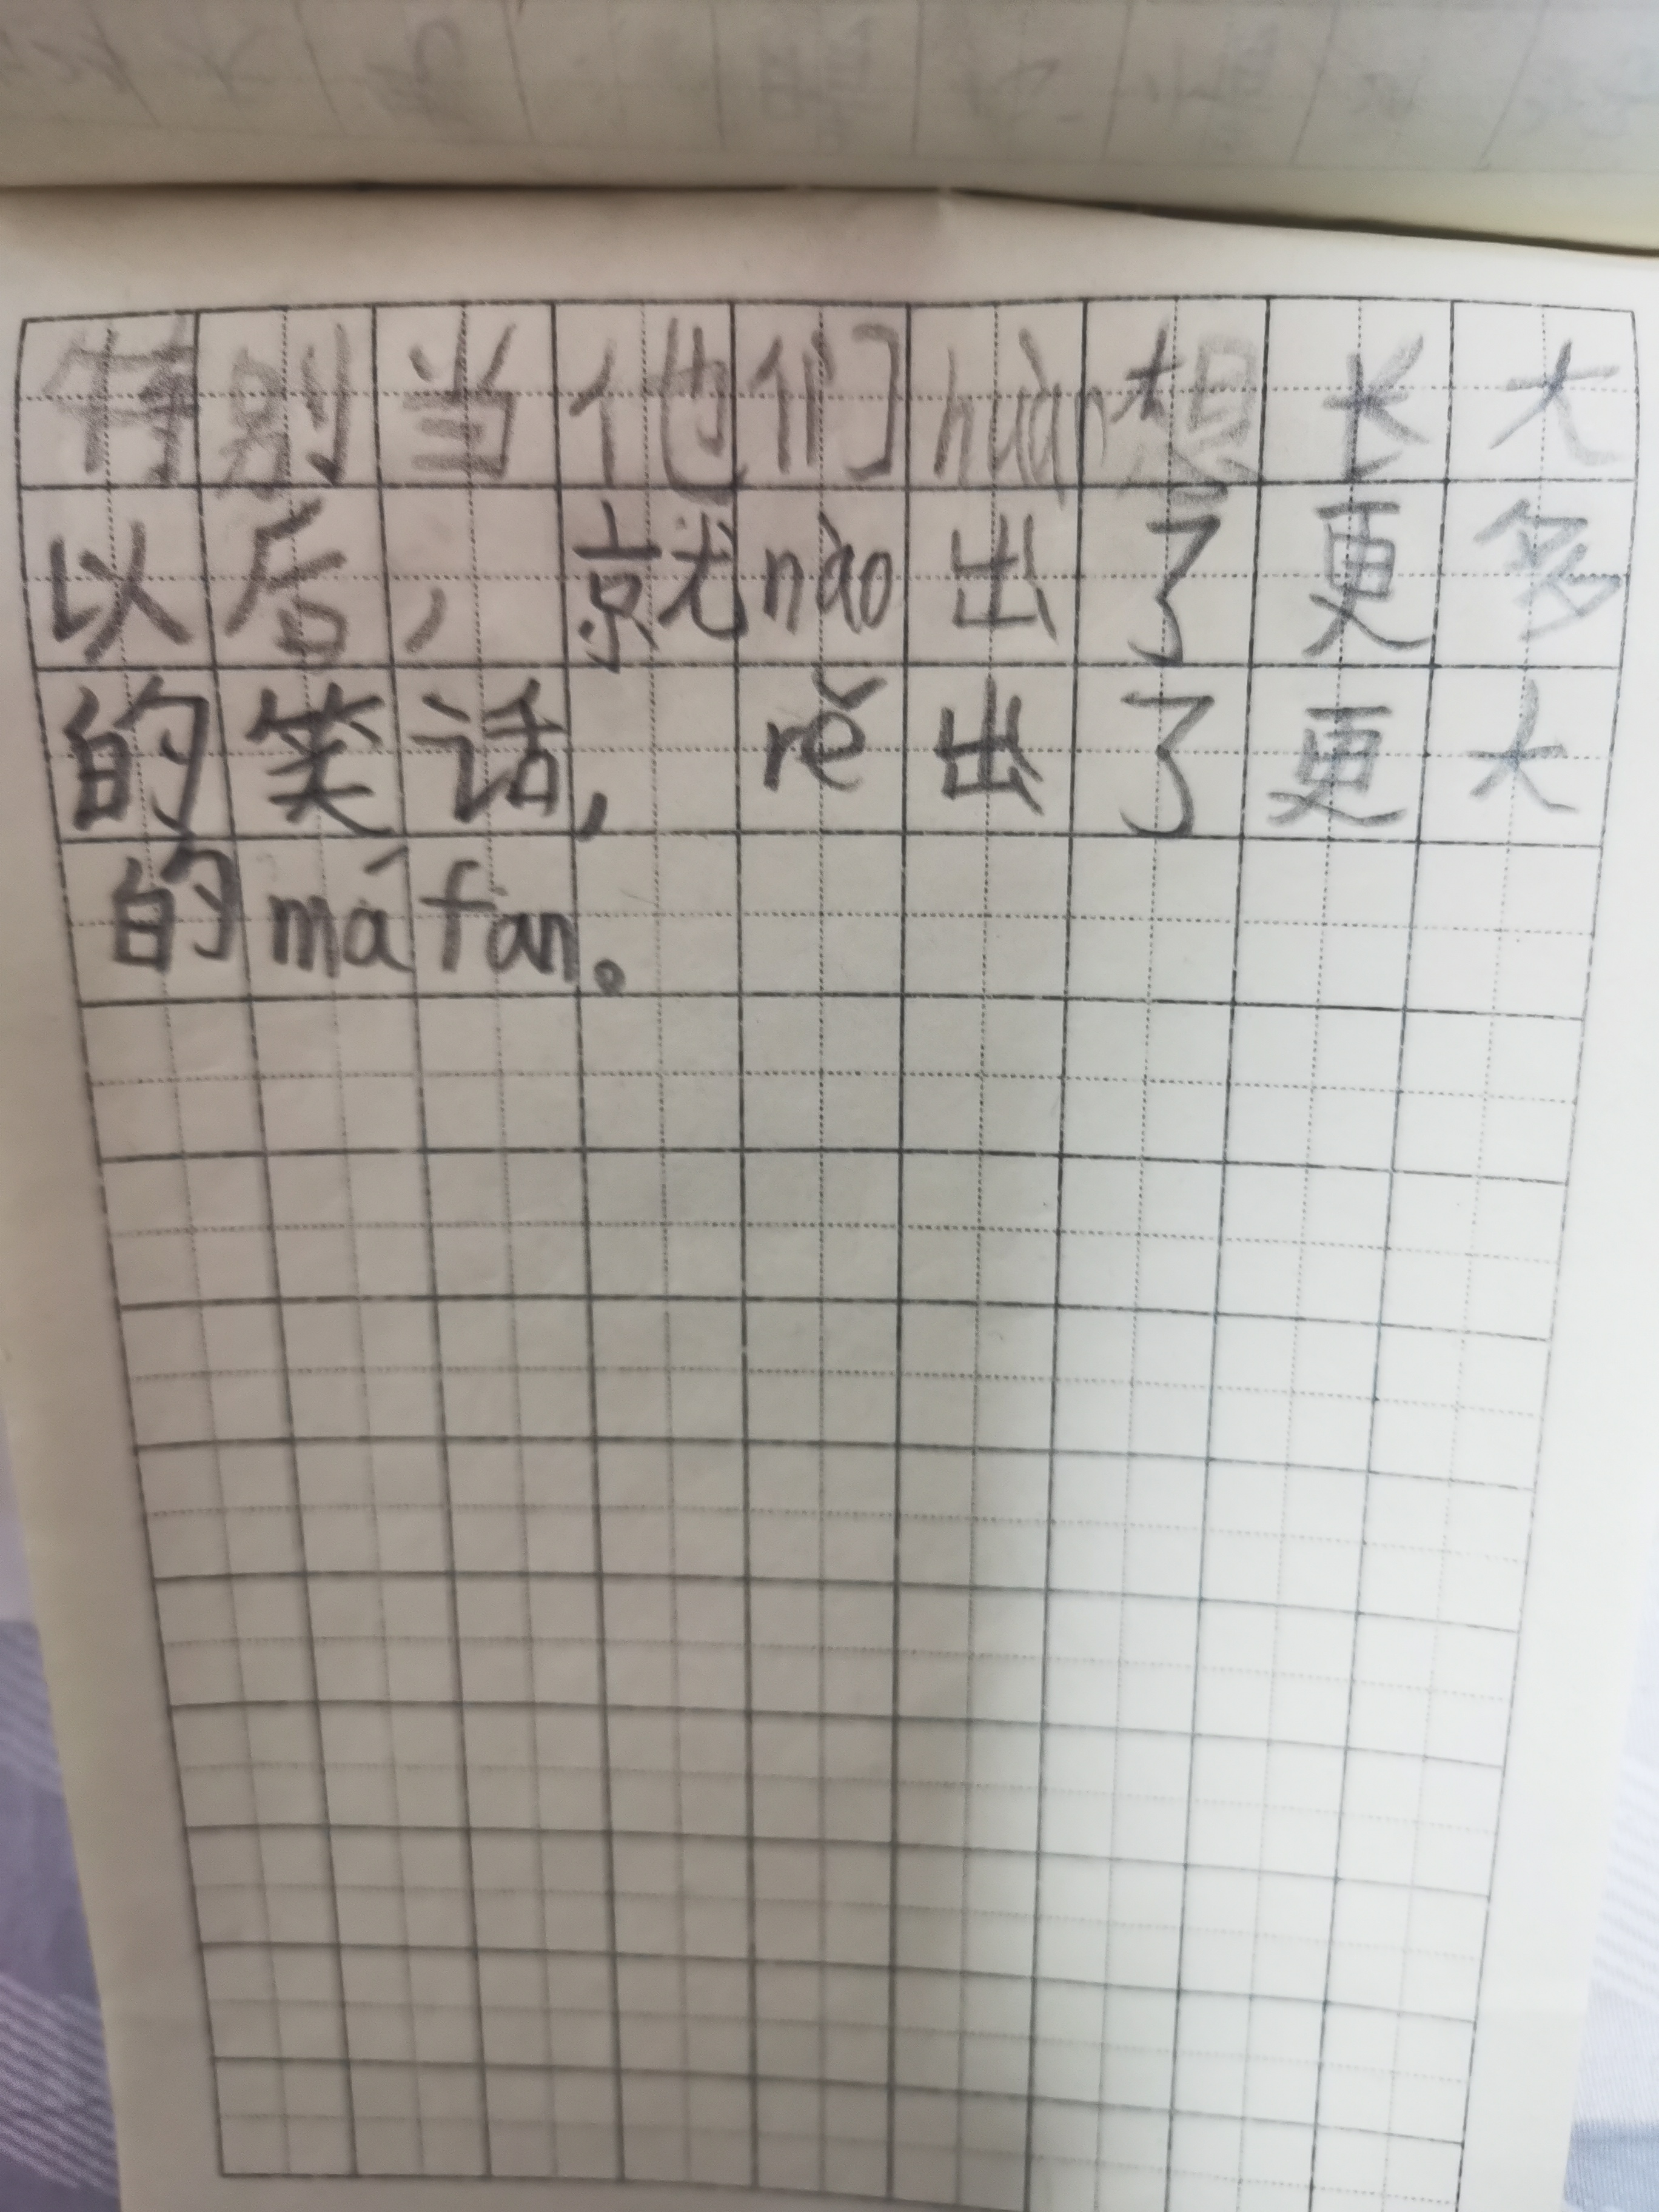 特别当他们huàn想长大
以后，就nào出了更多
的笑话，rě出了更大
的má fan。